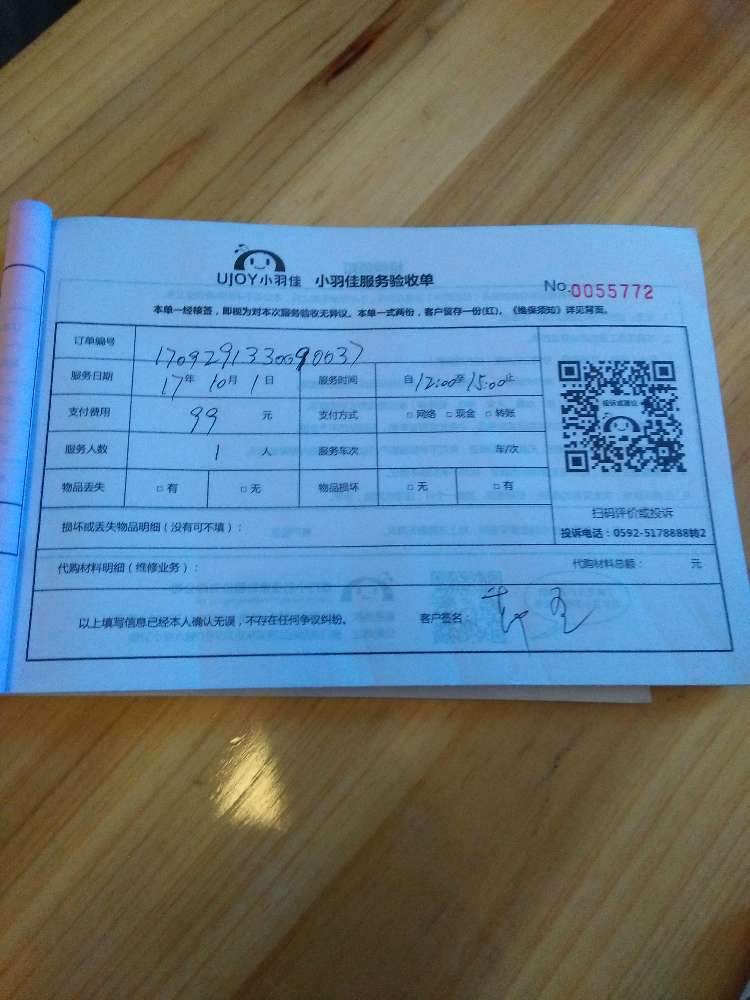 UJOY小羽佳 小羽佳服务验收单 No.0055772
本单一经核签，即视为对本次服务验收无异议。本单一式两份，客户留存一份(红)。《维保须知》详见背面。
订单编号 1709291330090037
服务日期 17年 10月 1日 服务时间 自12:00至15:00止
支付费用 99 元 支付方式 □ 网络 □ 现金 □ 转账
投诉或建议
服务人数 1 人 服务车次 车/次
物品丢失 □ 有 □ 无 物品损坏 □ 无 □ 有
扫码评价或投诉
损坏或丢失物品明细（没有可不填）：
投诉电话：0592-5178888转2
代购材料明细（维修业务）： 代购材料总额： 元
以上填写信息已经本人确认无误，不存在任何争议纠纷。 客户签名：